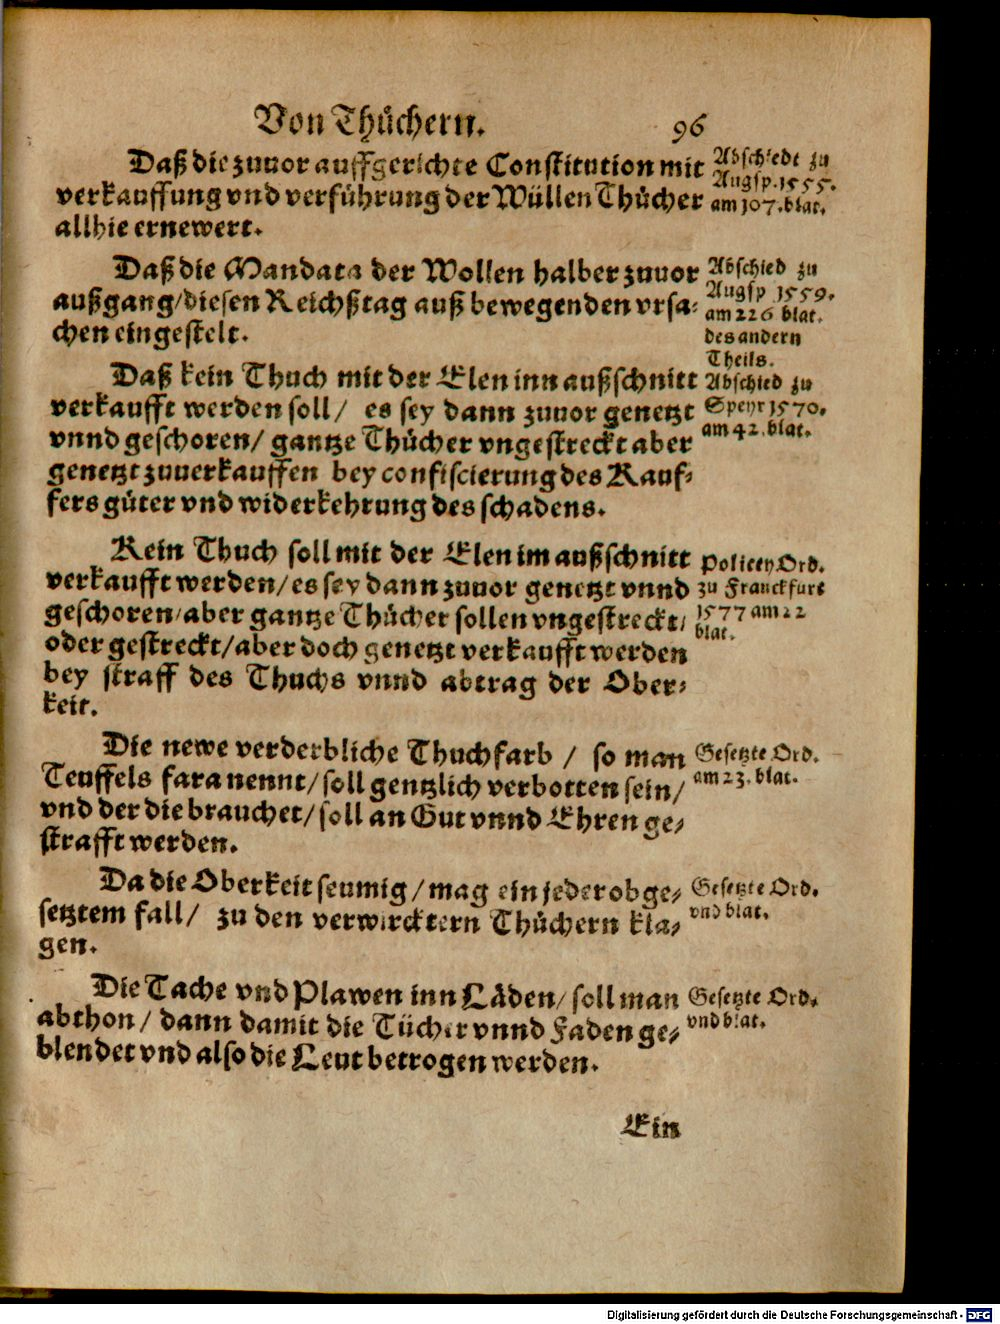 Von Thüchern. 96
Daß die zuuor auffgerichte Constitution mit
verkauffung vnd verführung der Wüllen Thücher
allhie ernewert.
Abschiedt zu
Augsp. 1555.
am 107. blat.
Daß die Mandata der Wollen halber zuuor
außgang/ diesen Reichßtag auß bewegenden vrsa-
chen eingestelt.
Abschied zu
Augsp 1559.
am 226 blat.
des andern
Theils.
Daß kein Thuch mit der Elen inn außschnitt
verkaufft werden soll/ es sey dann zuuor genetzt
vnnd geschoren/ gantze Thücher vngestreckt aber
genetzt zuuerkauffen bey confiscierung des Kauf-
fers güter vnd widerkehrung des schadens.
Abschied zu
Speyr 1570.
am 42. blat.
Kein Thuch soll mit der Elen im außschnitt
verkaufft werden/ es sey dann zuuor genetzt vnnd
geschoren/ aber gantze Thücher sollen vngestreckt/
oder gestreckt/ aber doch genetzt verkaufft werden
bey straff des Thuchs vnnd abtrag der Ober-
keit.
Policey Ord.
zu Franckfurt
1577 am 22
blat.
Die newe verderbliche Thuchfarb / so man
Teuffels fara nennt/ soll gentzlich verbotten sein/
vnd der die brauchet/ soll an Gut vnnd Ehren ge-
strafft werden.
Gesetzte Ord.
am 23. blat.
Da die Oberkeit seumig/ mag ein jeder obge-
setztem fall/ zu den verwircktern Thüchern kla-
gen.
Gesetzte Ord.
vnd blat.
Die Tache vnd Plawen inn Läden/ soll man
abthon/ dann damit die Tücher vnnd Faden ge-
blendet vnd also die Leut betrogen werden.
Gesetzte Ord.
vnd blat.
Ein
Digitalisierung gefördert durch die Deutsche Forschungsgemeinschaft - DFG